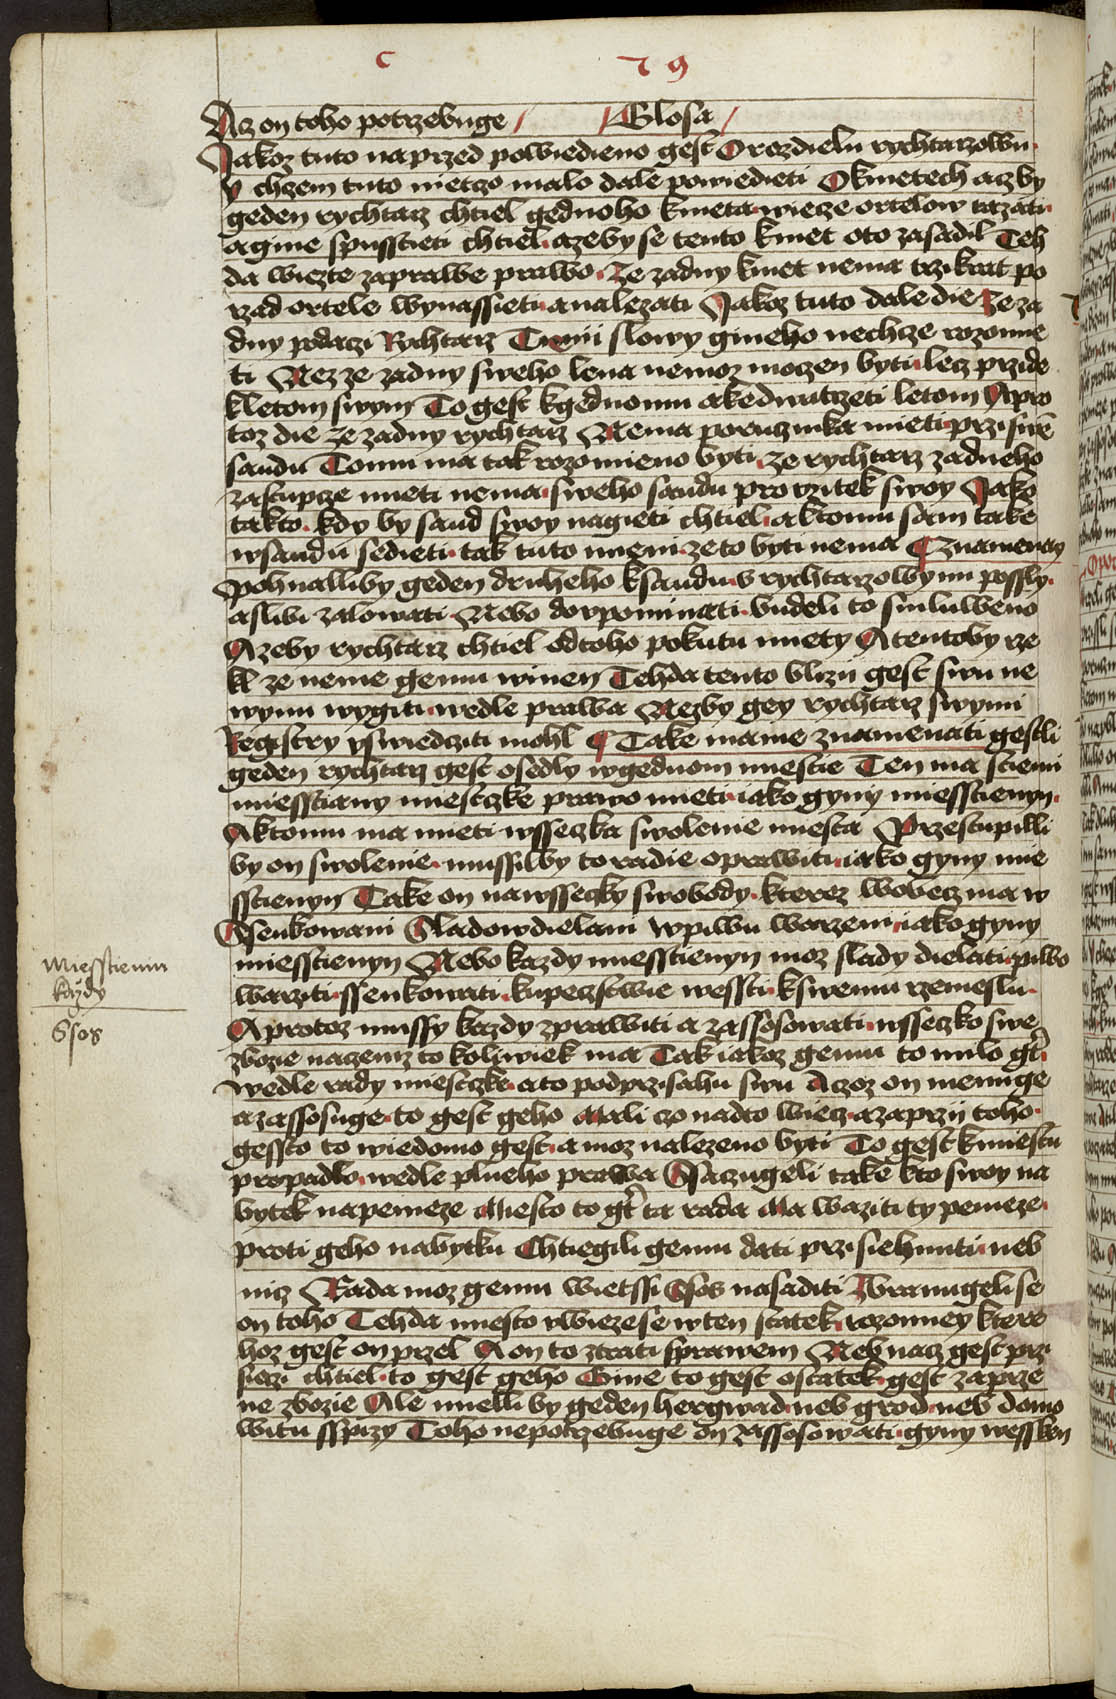 C 79
Az on toho potrzebuge / / Glosa /
Jakoz tuto naprzed powiedieno gest O rozdielu rychtarzowu
y chzem tuto nietczo malo dale powiedieti O kmetech aczby
geden rychtarz chtiel gednoho kmeta wiecze ortelow tazati
a gine spusstieti chtiel azeby se tento kmet oto zasadil Teh
da wiezte zaprawe prawo Ze zadny kmet nema trzikrat po
rzad ortele wynassieti a nalezati Jakoz tuto dale die Ze za
dny podaczi Rychtarz Tiemi slowy gineho nechcze rozomie
ti Nez ze zadny sweho lena nemoz moczen byti lecz przide
kletom swym To gest kgednomu akedwatczeti letom A pro
toz die ze zadny rychtarz Nema porucznika mieti przi swe
saudu Tomu ma tak rozomieno byti ze rychtarz zadneho
zastupcze mieti nema sweho saudu pro vzitek swoy Jako
takto kdy by saud swoy nagieti chtiel a ktomu sam take
wsaudu sedieti tak tuto mieni zeto byti nema ¶ Znamenay
Pohnalliby geden druheho ksaudu v rychtarzowymi possly
aslibi zalowati Nebo dopominati budeli to smluweno
Azeby rychtarz chtiel odtoho pokutu miety A tentoby rze
kl ze nenie gemu winen Tehda tento blizii gest swu ne
winu wygiti wedle prawa Nezby gey rychtarz swymi
Registry vswiedcziti mohl ¶ Take mame znamenati gestli
geden rychtarz gest osedly wgednom miestie Ten ma stiemi
miesstiany miestczke prawo mieti iako gyny miesstienyn
Aktomu ma mieti wsseczka swolenie miesta Przestupilli
by on swolenie mussilby to radie oprawiti iako gyny mie
sstienyn Take on nawsseczky swobody kterez wobecz ma w
Ssenkowani Sladowdielani wpiwu warzeni iako gyny
miesstienyn Nebo kazdy miesstienyn moz slady dielati piwo
warziti ssenkowati kupeczstwie wessti kswemu rzemeslu
A protoz mussy kazdy zprawiti a zassosowati wsseczko swe
zbozie naczemz to koliwiek ma Tak iakoz gemu to milo gt
wedle rady miestczke ato podprzisahu swu Aczoz on menuge
azassosuge to gest geho Mali czo nadto wiecz azaprzij toho
gessto to wiedomo gest a moz nalezeno byti To gest kmiestu
propadlo wedle plneho prawa Ssaczugeli take kto swoy na
bytek napenieze Miesto to gt ta rada Ma waziti ty penieze
proti geho nabytku Chtiegili gemu dati przisiehnuti neb
nicz Rada moz gemu wietssi Ssos nasaditi Brannigeli se
on toho Tehda miesto vwieze se wten statek rozomney ktere
hoz gest on przel A on to ztrati sprawem Neb nacz gest prz
siczi chtiel to gest geho Gine to gest ostatek gest zaprze
ne zbozie Ale mielli by geden hergwad neb grod neb domo
witu sspizy Toho nepotrzebuge on zassosowati gyny wessken
Miesstienin
každy
Ssos